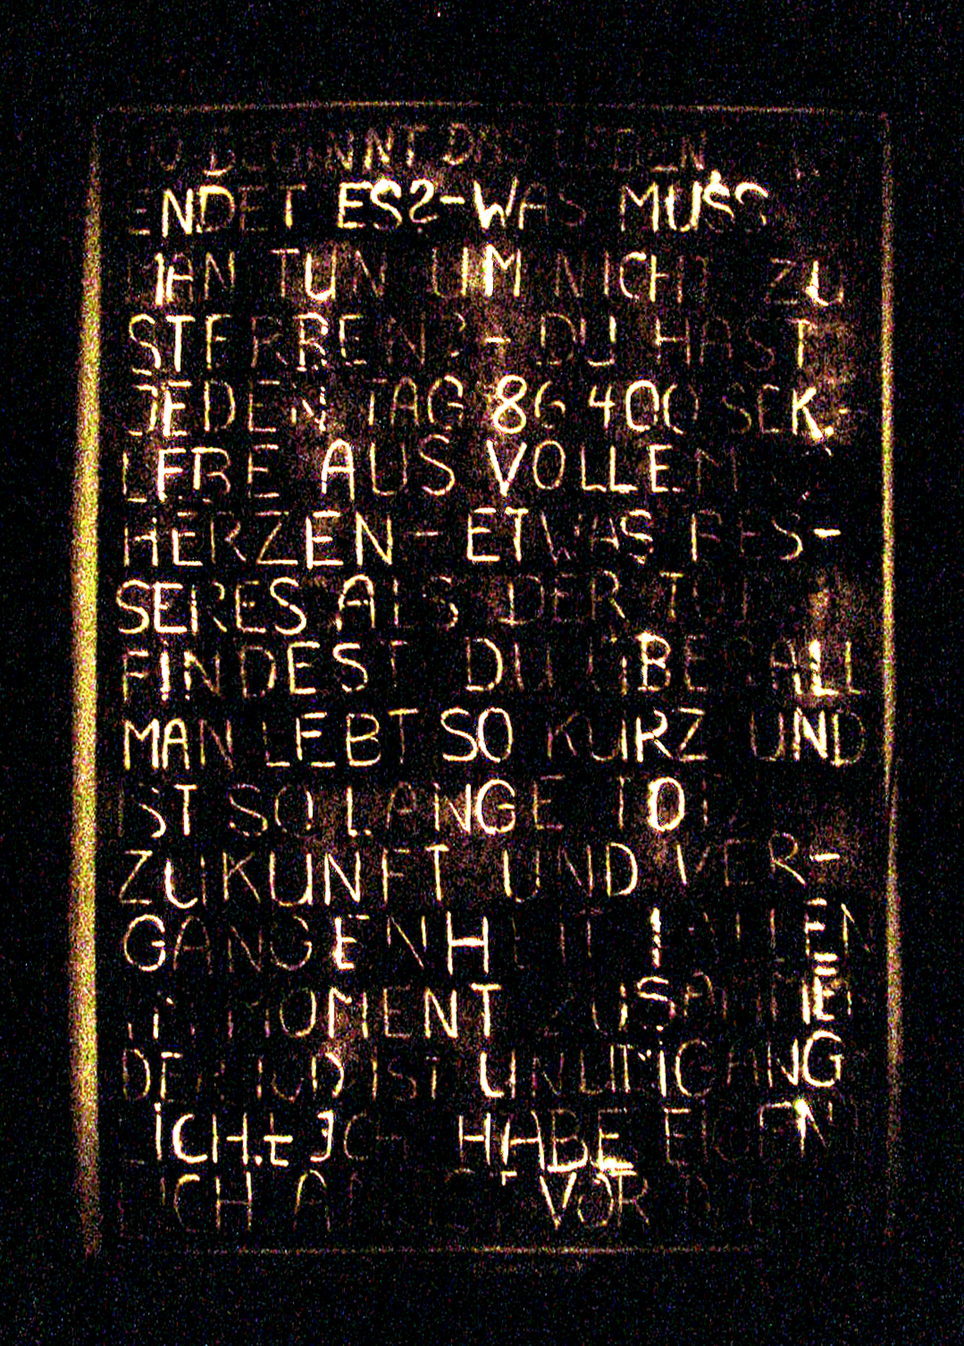 WO BEGINNT DAS LEBEN
ENDET ES?-WAS MUSS
MAN TUN UM NICHT ZU
STERBEN?- DU HAST
JEDEN TAG 86 400 SEK.-
LEBE AUS VOLLEM
HERZEN- ETWAS BES-
SERES ALS DER TOD
FINDEST DU ÜBERALL
MAN LEBT SO KURZ UND
IST SO LANGE TOT
ZUKUNFT UND VER-
GANGENHEIT FALLEN
IM MOMENT ZUSAMMEN
DER TOD IST UNUMGÄNG
LICH.± ICH HABE EIGENT
LICH ANGST VOR